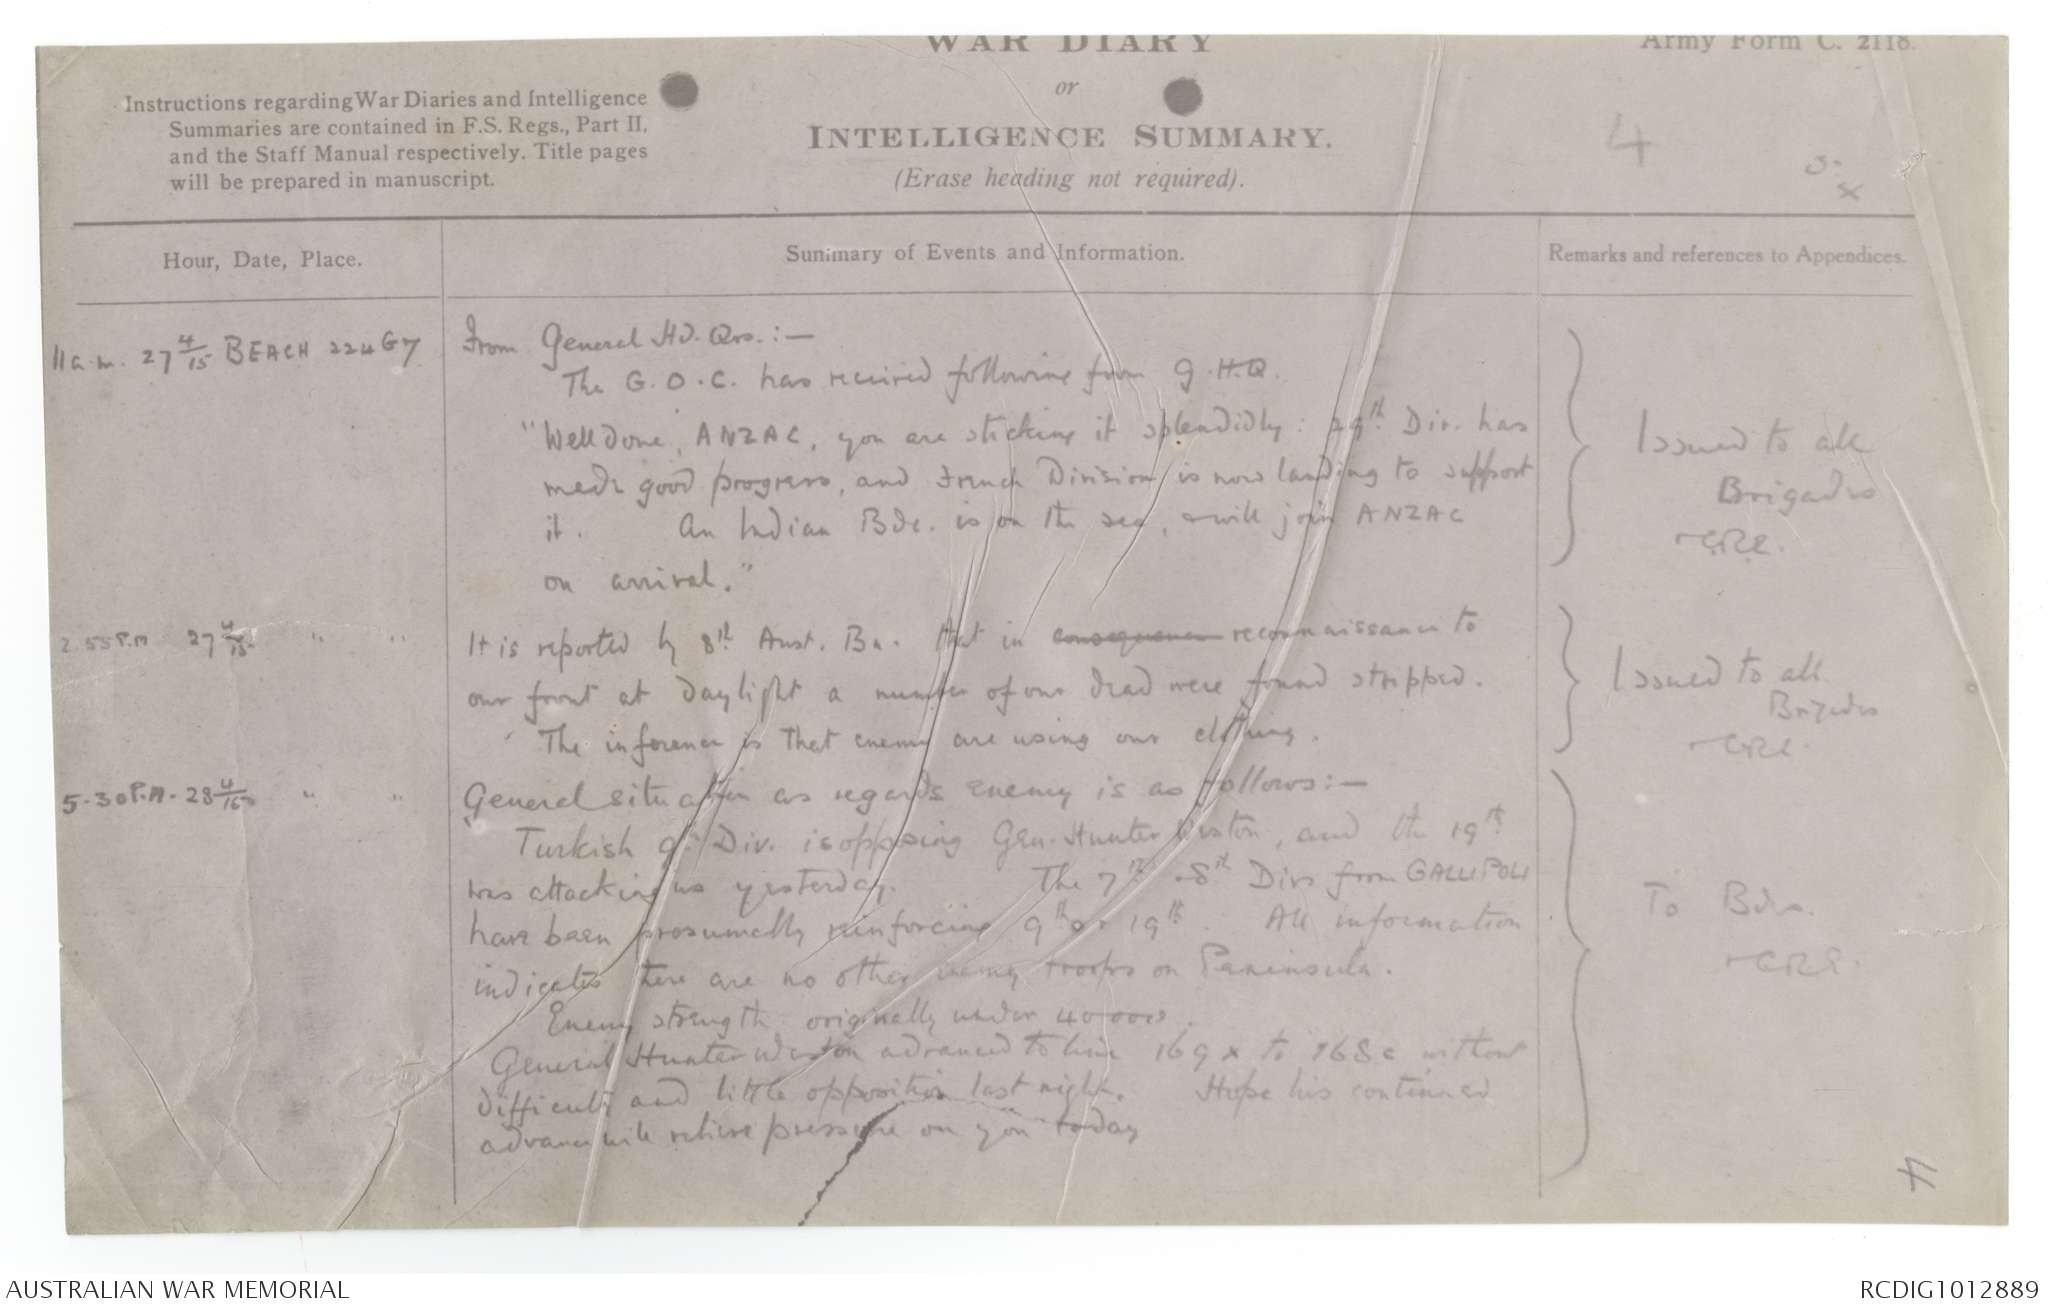 WAR DIARY
Army Form C. 2118.
or
INTELLIGENCE SUMMARY.
(Erase heading not required).
Instructions regarding War Diaries and Intelligence
Summaries are contained in F.S. Regs., Part II,
and the Staff Manual respectively. Title pages
will be prepared in manuscript.
4
Hour, Date, Place.
Summary of Events and Information.
Remarks and references to Appendices.
11 a.m. 27 4/15 BEACH 224 G7
From General Hd. Qrs. :—
The G.O.C. has received following from G.H.Q.
"Well done, ANZAC, you are sticking it splendidly : 29th Div. has
made good progress, and French Division is now landing to support
it. An Indian Bde. is on the sea, & will join ANZAC
on arrival."
Issued to all
Brigades
& CRE.
2.55 P.M 27 4/15 " "
It is reported by 8th Aust. Bn. that in consequence reconnaissance to
our front at daylight a number of our dead were found stripped.
The inference is that enemy are using our clothing.
Issued to all
Brigades
& CRE.
5.30 P.M. 28 4/15 " "
General situation as regards enemy is as follows :—
Turkish 9th Div. is opposing Gen. Hunter Weston, and the 19th
was attacking us yesterday. The 7th & 8th Divs from GALLIPOLI
have been presumably reinforcing 9th or 19th. All information
indicates there are no other enemy troops on Peninsula.
Enemy strength originally under 40000.
General Hunter Weston advanced to line 169 x to 168 c without
difficulty and little opposition last night. Hope his continued
advance will relieve pressure on you today
To Bdes.
& CRE.
AUSTRALIAN WAR MEMORIAL
RCDIG1012889